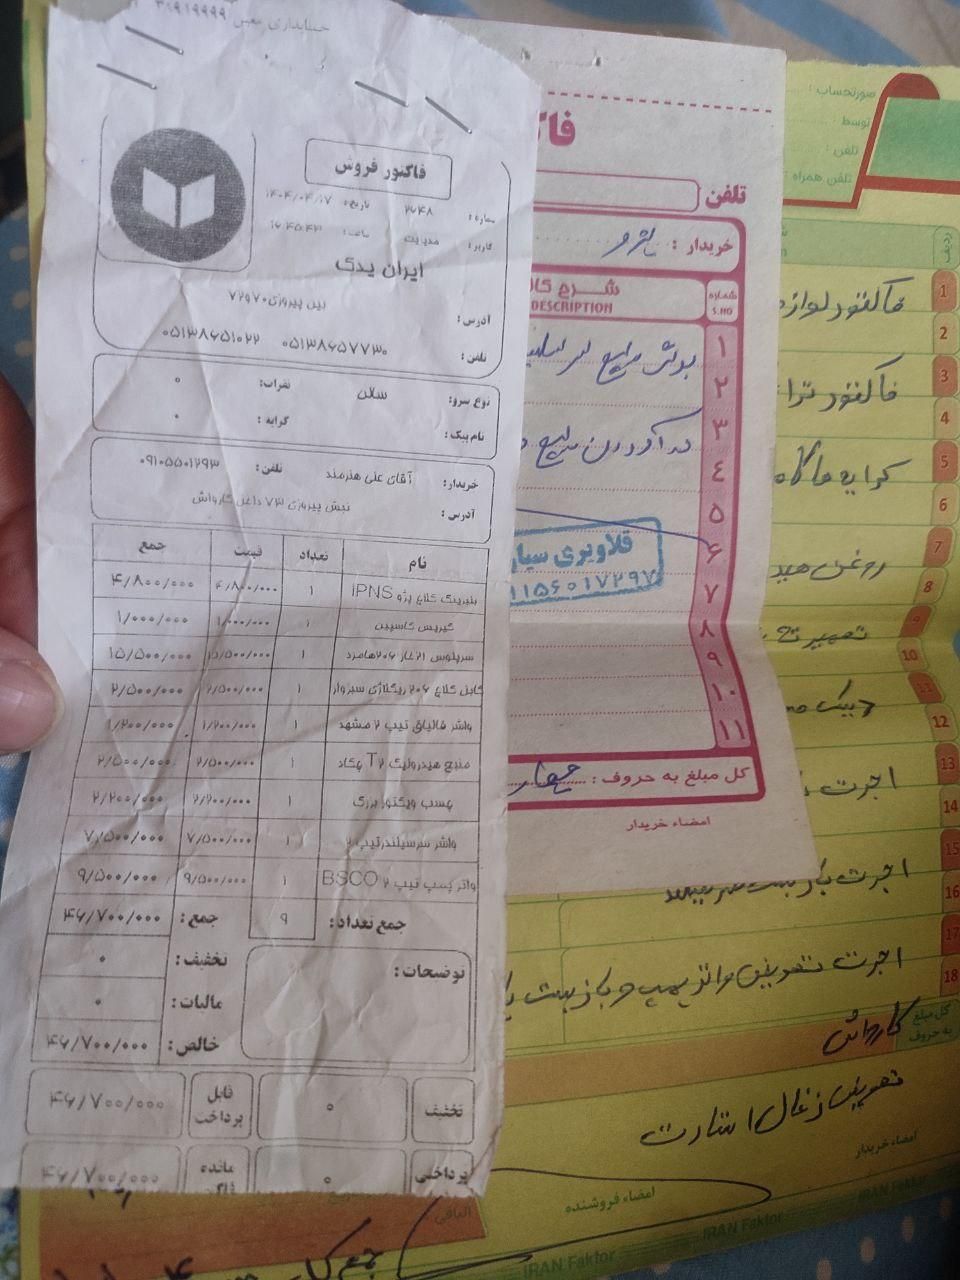 حسابداری معین ۳۸۹۱۹۹۹۹
فاکتور فروش
شماره: ۲۶۴۸ تاریخ: ۱۴۰۴/۰۴/۱۷
کاربر: مدیریت ساعت: ۱۶:۴۵:۴۳
ایران یدک
آدرس: بین پیروزی ۷۰و۷۲
تلفن: ۰۵۱۳۸۶۵۷۷۳۰ ۰۵۱۳۸۶۵۱۰۲۲
نوع سرو: سالن نفرات: ۰
نام پیک: کرایه: ۰
خریدار: آقای علی هنرمند تلفن: ۰۹۱۰۵۵۰۱۲۹۳
آدرس: نبش پیروزی ۷۳ داخل کارواش
نام تعداد قیمت جمع
بلبرینگ کلاچ پژو IPNS ۱ ۴/۸۰۰/۰۰۰ ۴/۸۰۰/۰۰۰
گیریس کاسپین ۱ ۱/۰۰۰/۰۰۰ ۱/۰۰۰/۰۰۰
سرپلوس ۲۱خار ۲۰۶هامرز ۱ ۱۵/۵۰۰/۰۰۰ ۱۵/۵۰۰/۰۰۰
کابل کلاچ ۲۰۶ ریگلاژی سبزوار ۱ ۲/۵۰۰/۰۰۰ ۲/۵۰۰/۰۰۰
واشر قالپاق تیپ ۲ مشهد ۱ ۱/۲۰۰/۰۰۰ ۱/۲۰۰/۰۰۰
منبع هیدرولیک T۲ چکاد ۱ ۲/۵۰۰/۰۰۰ ۲/۵۰۰/۰۰۰
چسب ویکتور بزرگ ۱ ۲/۲۰۰/۰۰۰ ۲/۲۰۰/۰۰۰
واشر سرسیلندر تیپ ۲ ۱ ۷/۵۰۰/۰۰۰ ۷/۵۰۰/۰۰۰
واتر پمپ تیپ ۲ BSCO ۱ ۹/۵۰۰/۰۰۰ ۹/۵۰۰/۰۰۰
جمع تعداد: ۹ جمع: ۴۶/۷۰۰/۰۰۰
توضیحات: تخفیف: ۰
مالیات: ۰
خالص: ۴۶/۷۰۰/۰۰۰
تخفیف ۰ قابل پرداخت ۴۶/۷۰۰/۰۰۰
پرداختی ۰ مانده ۴۶/۷۰۰/۰۰۰
تلفن
خریدار:
شماره S.NO
شرح کا DESCRIPTION
۱
۲
۳
۴
۵
۶
۷
۸
۹
۱۰
۱۱
قلاویزی سیار
۱۱۵۶۰۱۷۲۹۷
کل مبلغ به حروف: چهار
امضاء خریدار
صورتحساب:
توسط:
تلفن:
تلفن همراه:
ردیف
1 فاکتور لوازم
2
3 فاکتور ترا
4
5 کرایه ماشین
6
7 روغن هید
8
9 تعمیر
10
11 دیسک
12
13 اجرت
14
15 اجرت باز بست
16
17 اجرت تعویض واتر پمپ و باز بست
18
کل مبلغ به حروف
کارواش
تعویض زغال استارت
امضاء خریدار
امضاء فروشنده
الباقی:
IRAN Faktor IRAN Faktor IRAN Faktor
جمع کل